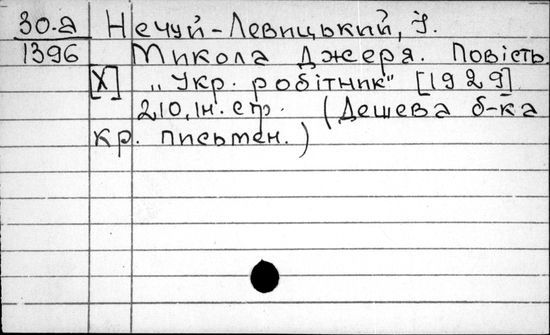 30.а Нечуй-Левицький, І.
1396 Микола Джеря. Повість.
[X] „Укр. робітник" [1929]
210, ін. стр. (Дешева б-ка
кр. письмен.)